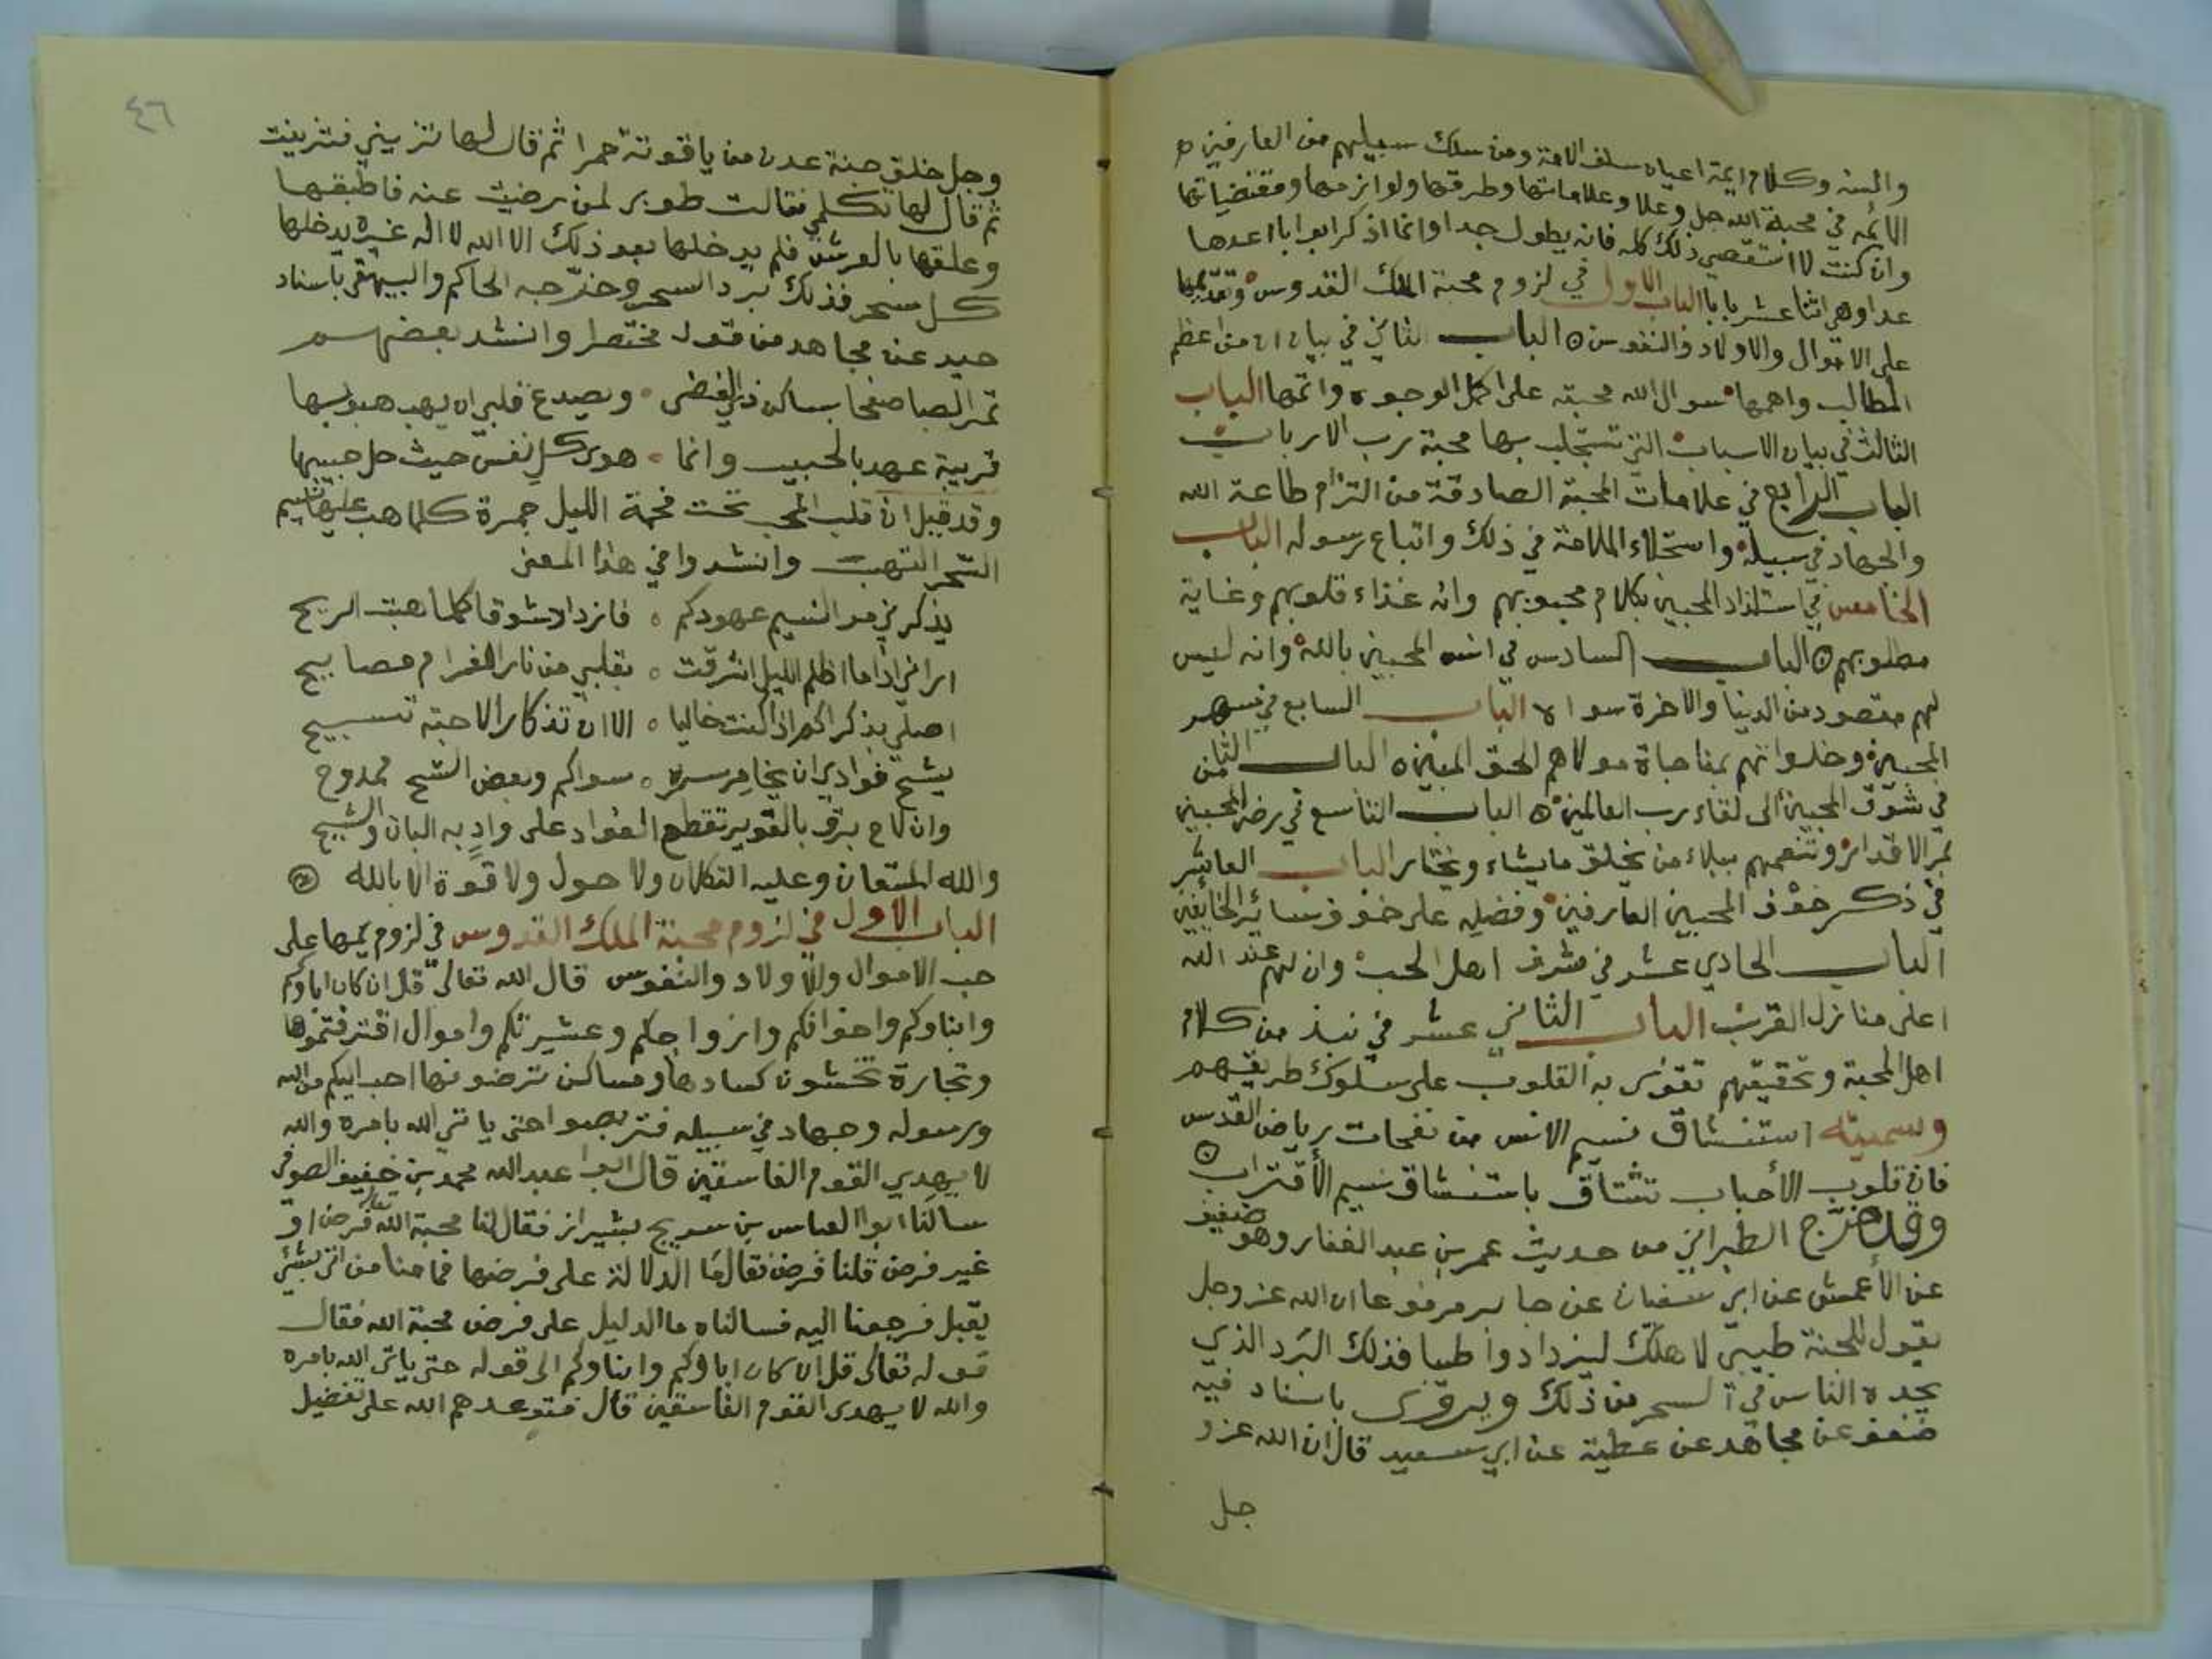 والسنه وكلام ايمة اعيان سلف الامة ومن سلك سبيلهم من العارفين
الائمه في محبة الله جل وعلا وعلاماتها وطرقها ولوازمها ومقتضياتها
وان كنت لا استقصي ذلك كله فانه يطول جدا وانما اذكر ابوابا اعدها
عدا وهي اثنا عشر بابا الباب الاول في لزوم محبة الملك القدوس وتقديمها
على الاموال والاولاد والنفوس الباب الثاني في بيان ان من اعظم
المطالب واهمها سوال الله محبته على اكمل الوجوه واتمها الباب
الثالث في بيان الاسباب التي تستجلب بها محبة رب الارباب
الباب الرابع في علامات المحبة الصادقة من التزام طاعة الله
والجهاد في سبيله واستحلاء الملامة في ذلك واتباع رسوله الباب
الخامس في استلذاذ المحبين بكلام محبوبهم وانه غذاء قلوبهم وغاية
مطلوبهم الباب السادس في انس المحبين بالله وانه ليس
لهم مقصود من الدنيا والاخرة سواه الباب السابع في سهر
المحبين وخلواتهم بمناجاة مولاهم الحق المبين الباب الثامن
في شوق المحبين الى لقاء رب العالمين الباب التاسع في رضى المحبين
بمر الاقدار وتنعمهم ببلاء من يخلق مايشاء ويختار الباب العاشر
في ذكر خوف المحبين العارفين وفضيله على خوف سائر الخايفين
الباب الحادي عشر في شرف اهل الحب وان لهم عند الله
اعلى منازل القرب الباب الثاني عشر في نبذ من كلام
اهل المحبة وتحقيقهم تقوى به القلوب على سلوك طريقهم
وسميته استنشاق نسيم الانس من نفحات رياض القدس
فان قلوب الأحباب تشتاق باستنشاق نسيم الأقتراب
وقد خرّج الطبراني من حديث عمر بن عبد الغفار وهو ضعيف
عن الأعمش عن ابي سفيان عن جابر مرفوعا ان الله عز وجل
يقول للجنة طيبي لاهلك ليزدادوا طيبا فذلك البرد الذي
يجده الناس في السحر من ذلك ويروى باسناد فيه
ضعف عن مجاهد عن عطية عن ابي سعيد قال ان الله عز و
جل
٤٦
وجل خلق جنة عدن من ياقوتة حمرا ثم قال لها تزيني فتزينت
ثم قال لها تكلمي فقالت طوبى لمن رضيت عنه فاطبقها
وعلقها بالعرش فلم يدخلها بعد ذلك الا الله لا اله غيره يدخلها
كل سحر فذلك برد السحر وخرّجه الحاكم والبيهقي باسناد
جيد عن مجاهد من قوله مختصرا وانشد بعضهم
تمر الصبا صفحا بساكن ذي الغضى ويصدع قلبي ان يهب هبوبها
قريبة عهد بالحبيب وانما هوى كل نفس حيث حل حبيبها
وقد قيل ان قلب المحب تحت فحمة الليل جمرة كلما هب عليها نسيم
السحر التهب وانشدوا في هذا المعنى
يذكرني مر النسيم عهودكم فازداد شوقا كلما هبت الريح
اراني اذا ما اظلم الليل اشرقت بقلبي من نار الغرام مصابيح
اصلي بذكراكم اذا كنت خاليا الا ان تذكار الاحبة تسبيح
يشح فوادي ان يخامر سره سواكم وبعض الشح ممدوح
وان لاح برق بالغوير تقطع الفؤاد على وادٍ به البان والشيح
والله المستعان وعليه التكلان ولا حول ولا قوة الا بالله
الباب الاول في لزوم محبة الملك القدوس في لزوم يمها على
حب الاموال والأولاد والنفوس قال الله تعالى قل ان كان اباوكم
وابناوكم واخوانكم وازواجكم وعشيرتكم واموال اقترفتموها
وتجارة تخشون كسادها ومساكن ترضونها احب اليكم من الله
ورسوله وجهاد في سبيله فتربصوا حتى ياتي الله بامره والله
لا يهدي القوم الفاسقين قال ابو عبد الله محمد بن خفيف الصوفي
سالنا ابوا العباس بن سريج بشيراز فقال لنا محبة الله تعالى فرض او
غير فرض قلنا فرض فقال ما الدلالة على فرضها فما منا من اتى بشئ
يقبل فرجعنا اليه فسالناه ما الدليل على فرض محبة الله فقال
قوله تعالى قل ان كان اباؤكم وابناوكم الى قوله حتى ياتى الله بامره
والله لا يهدى القوم الفاسقين قال فتوعدهم الله على تفضيل